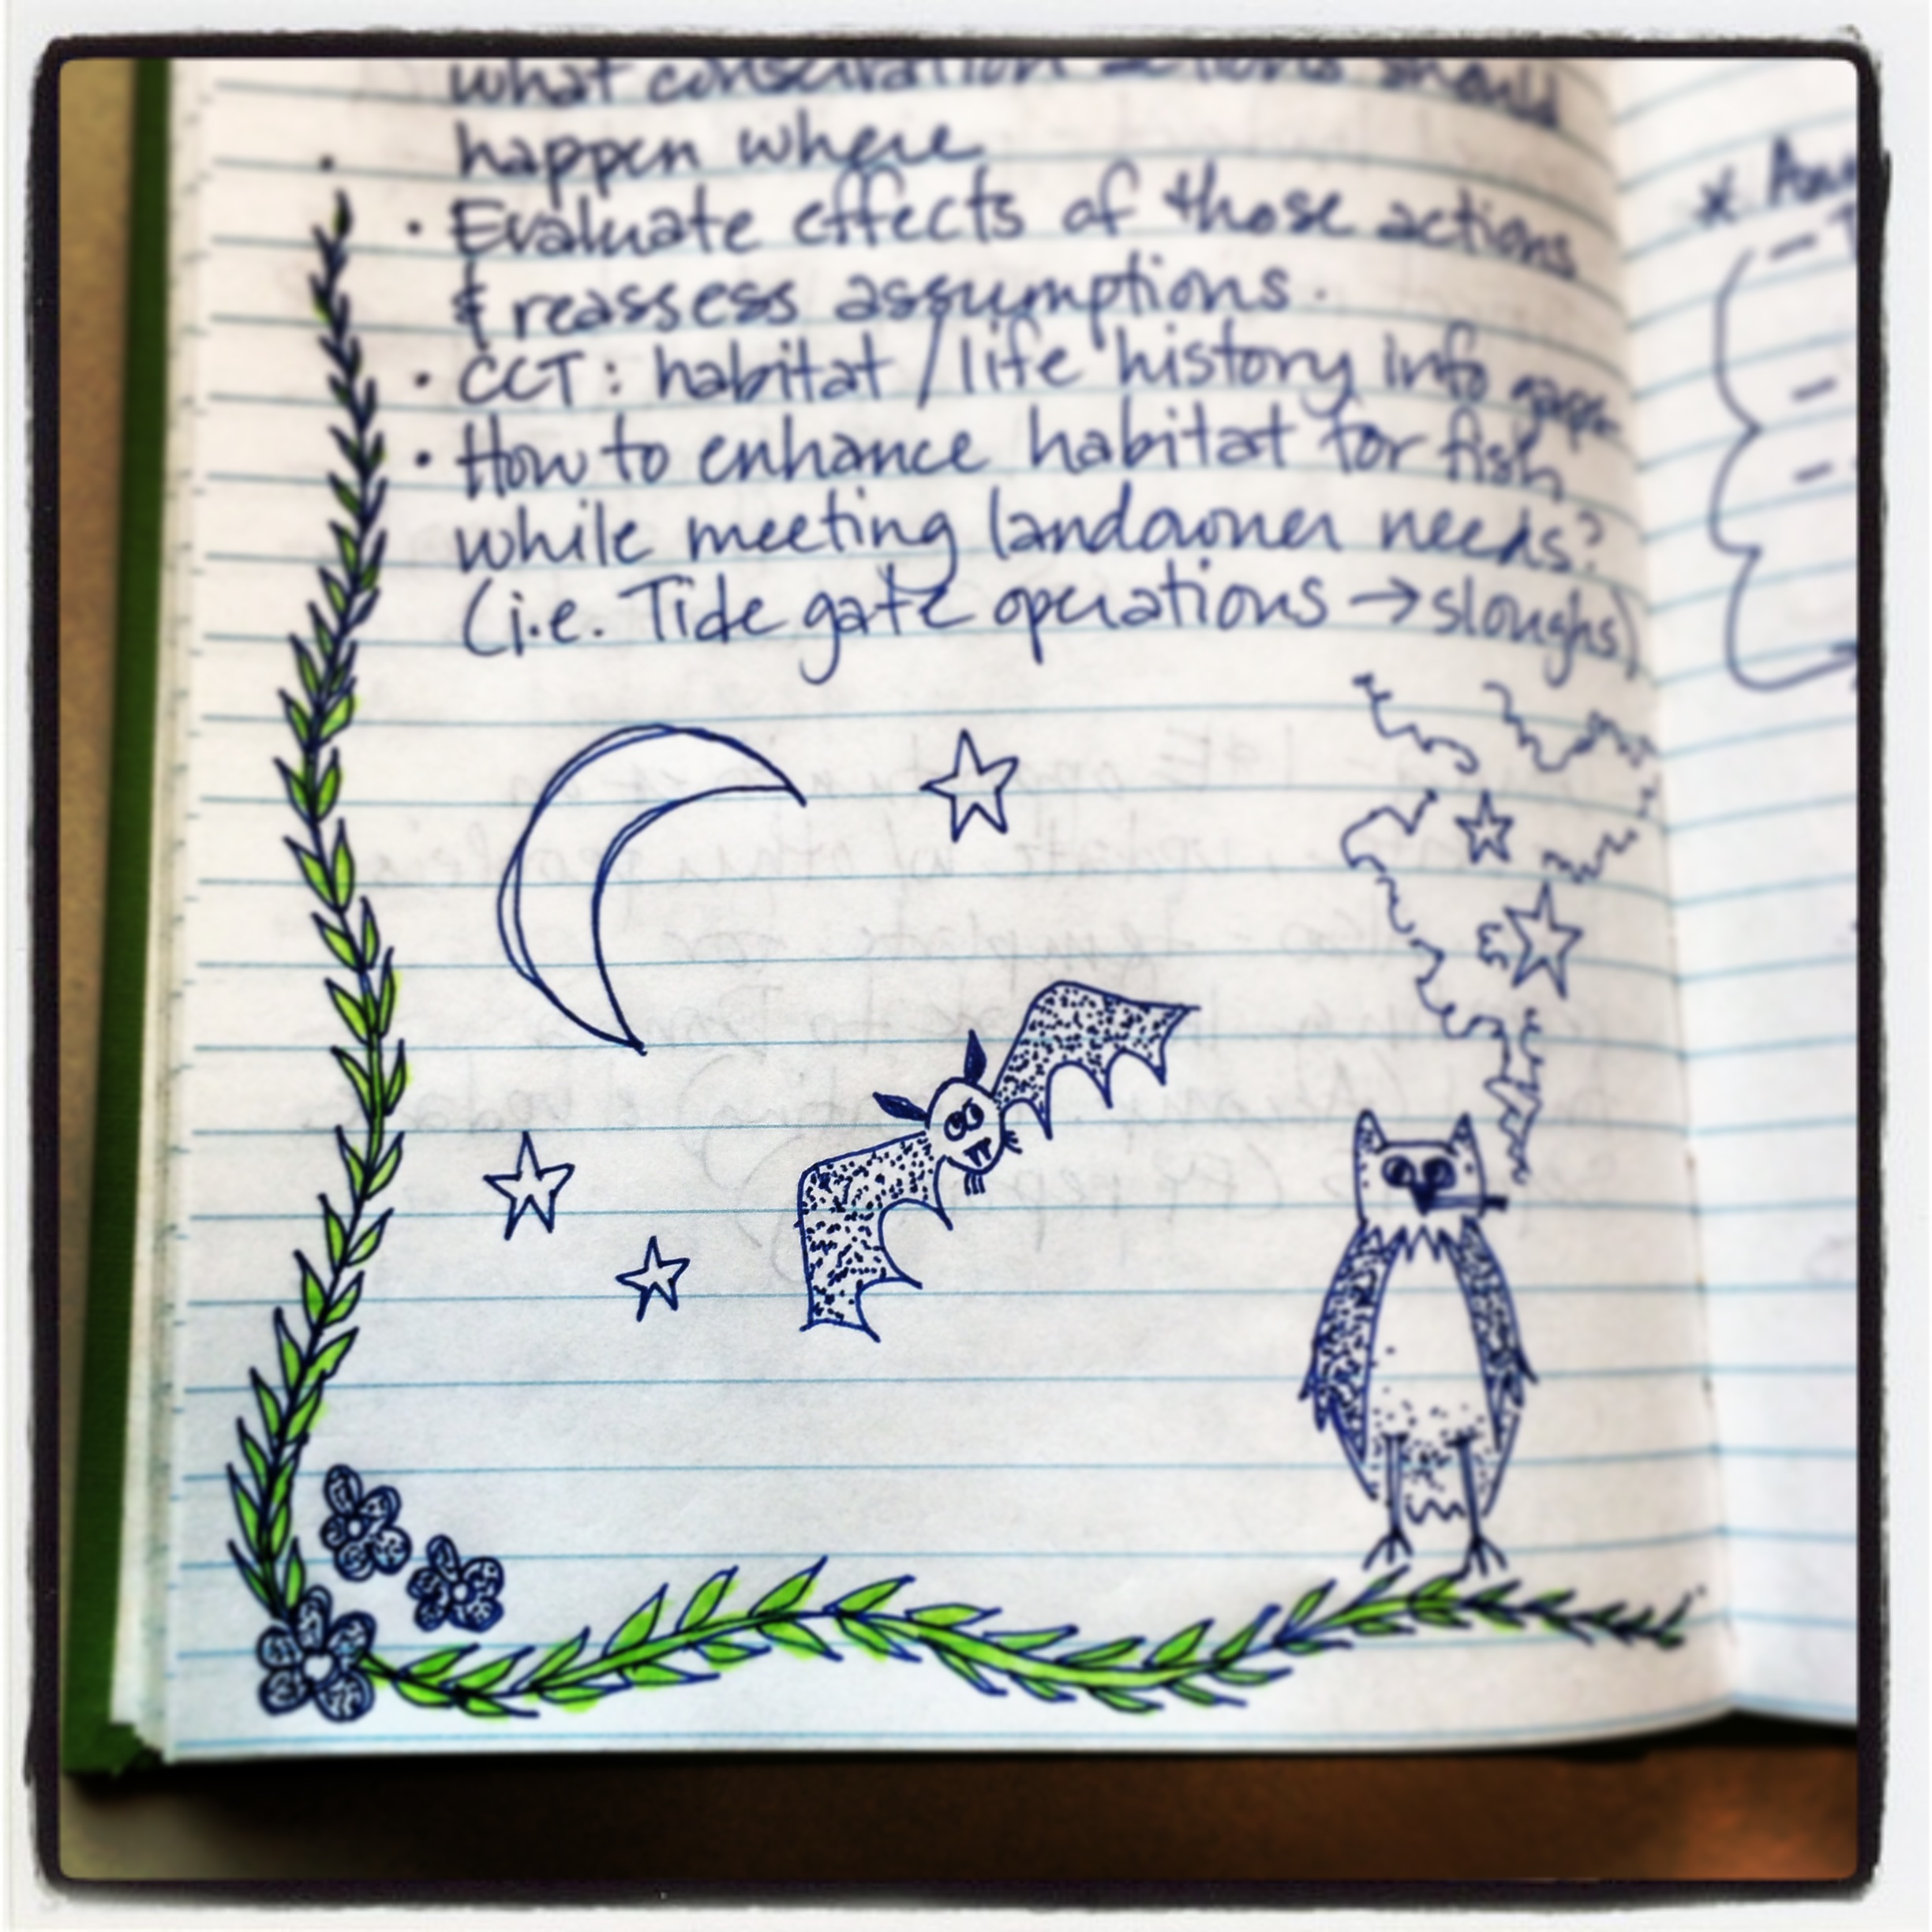 what conservation actions should
happen where
· Evaluate effects of those actions
& reassess assumptions.
· CCT: habitat / life history info gaps
· How to enhance habitat for fish
while meeting landowner needs?
(i.e. Tide gate operations → sloughs)
*